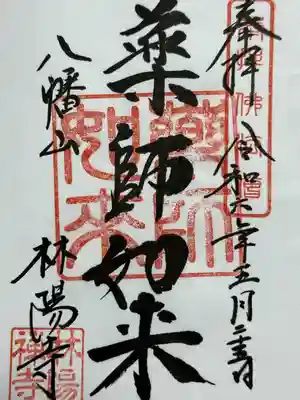 奉拝 令和六年五月二十五日
薬師如来
八幡山 林陽寺
薬師如来
林陽禅寺